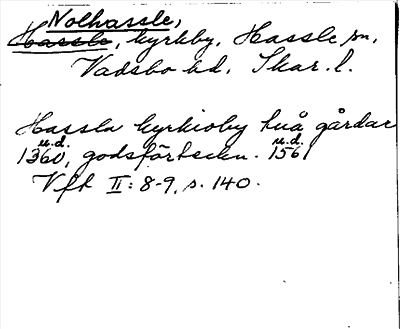 Nolhassle,
Hassle, kyrkby, Hassle sn,
Vadsbo hd, Skar. l.
Hassla kyrkioby tuå gårdar
u.d. u.d.
1360, godsförteckn. 1561
Vft II: 8-9, s. 140.